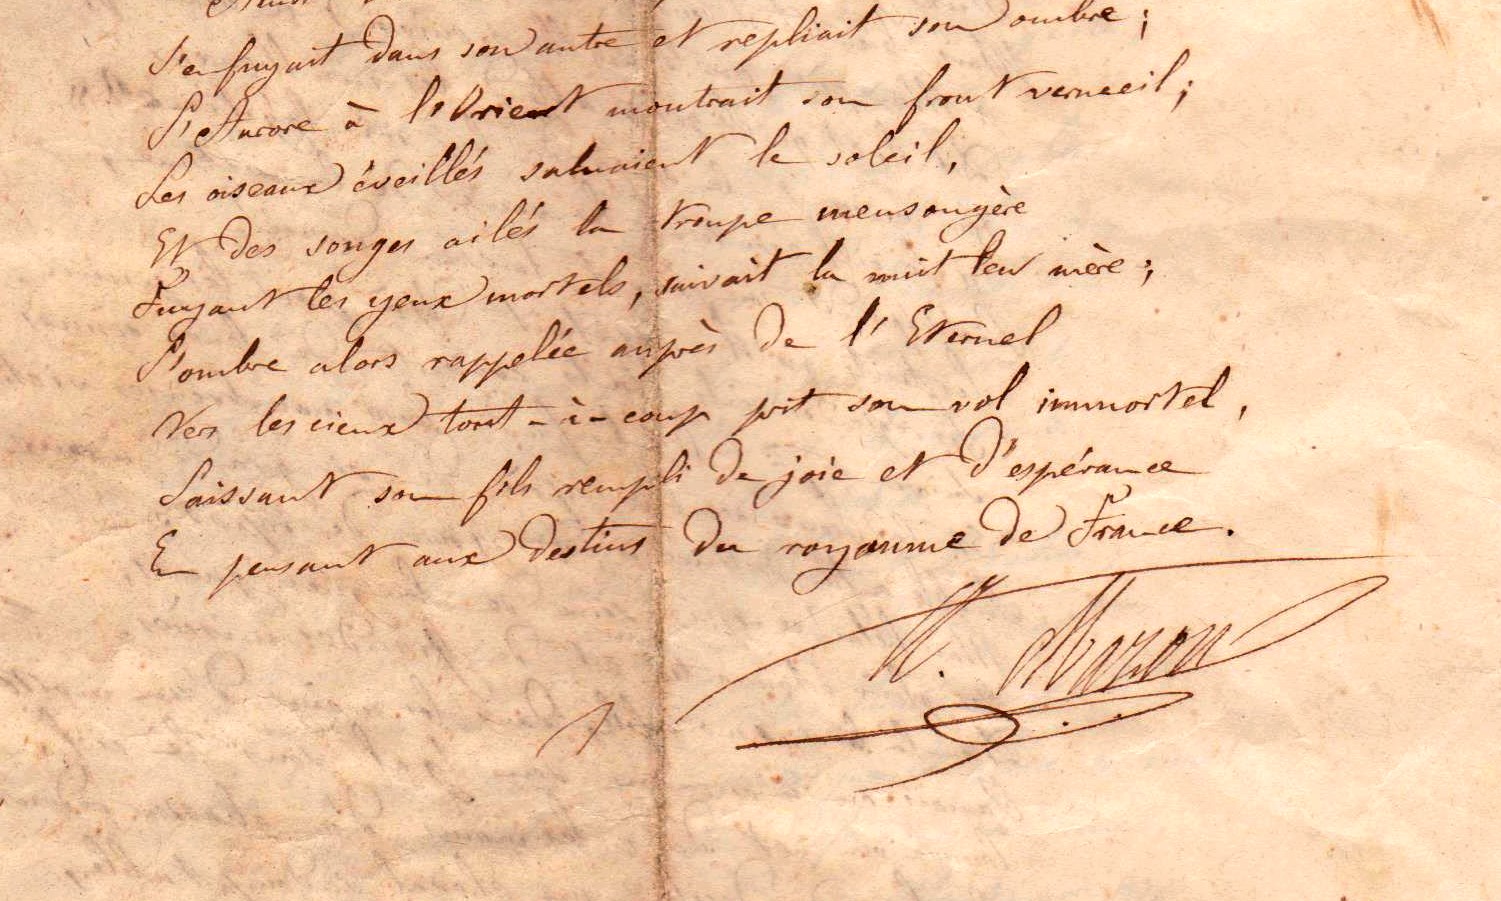 S'enfuyait dans son antre et repliait son ombre ;
L'Aurore à l'Orient montrait son front vermeil ;
Les oiseaux éveillés saluaient le soleil,
Et des songes ailés la troupe mensongère
Fuyant les yeux mortels, suivait la nuit leur mère ;
L'ombre alors rappelée auprès de l'Eternel
Vers les cieux tout-à-coup prit son vol immortel,
Laissant son fils rempli de joie et d'espérance
En pensant aux destins du royaume de France.
Mazon